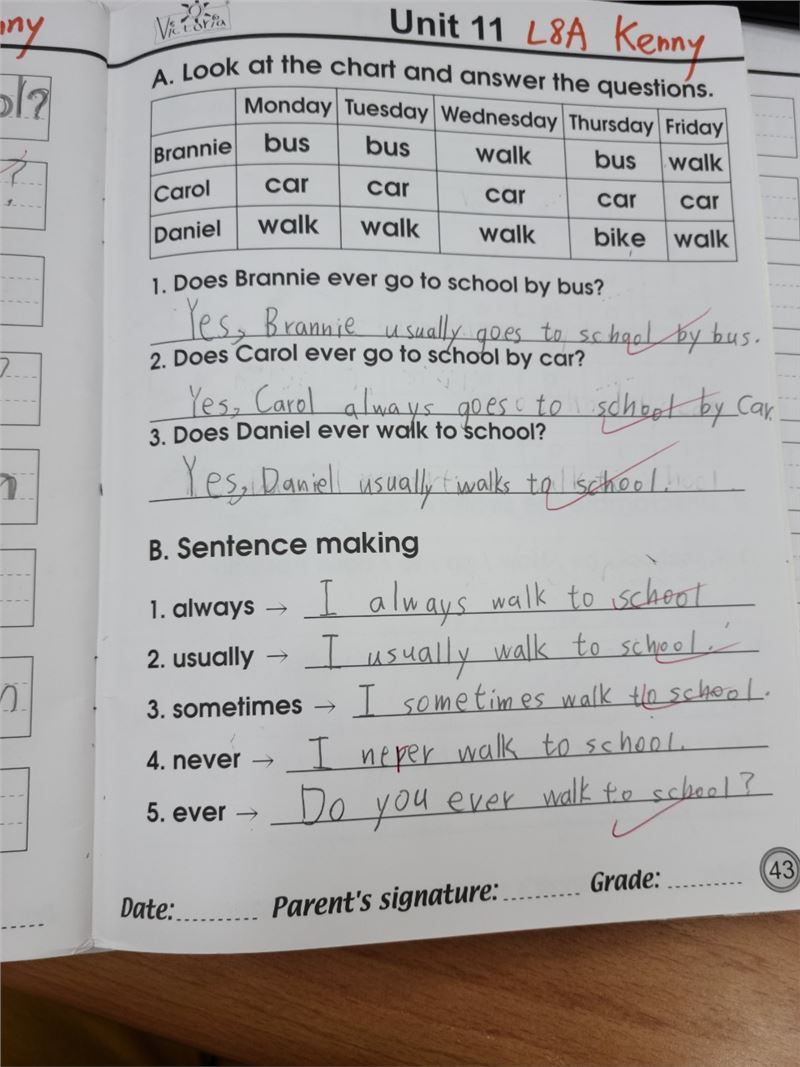 nny
Victoria
Unit 11 L8A Kenny
ol?
?
A. Look at the chart and answer the questions.
Monday Tuesday Wednesday Thursday Friday
Brannie bus bus walk bus walk
Carol car car car car car
Daniel walk walk walk bike walk
1. Does Brannie ever go to school by bus?
Yes, Brannie usually goes to school by bus.
2. Does Carol ever go to school by car?
Yes, Carol always goes to school by Car.
3. Does Daniel ever walk to school?
Yes, Daniel usually walks to school.
B. Sentence making
1. always → I always walk to school
2. usually → I usually walk to school.
3. sometimes → I sometimes walk to school.
4. never → I never walk to school.
5. ever → Do you ever walk to school?
Date: Parent's signature: Grade:
43